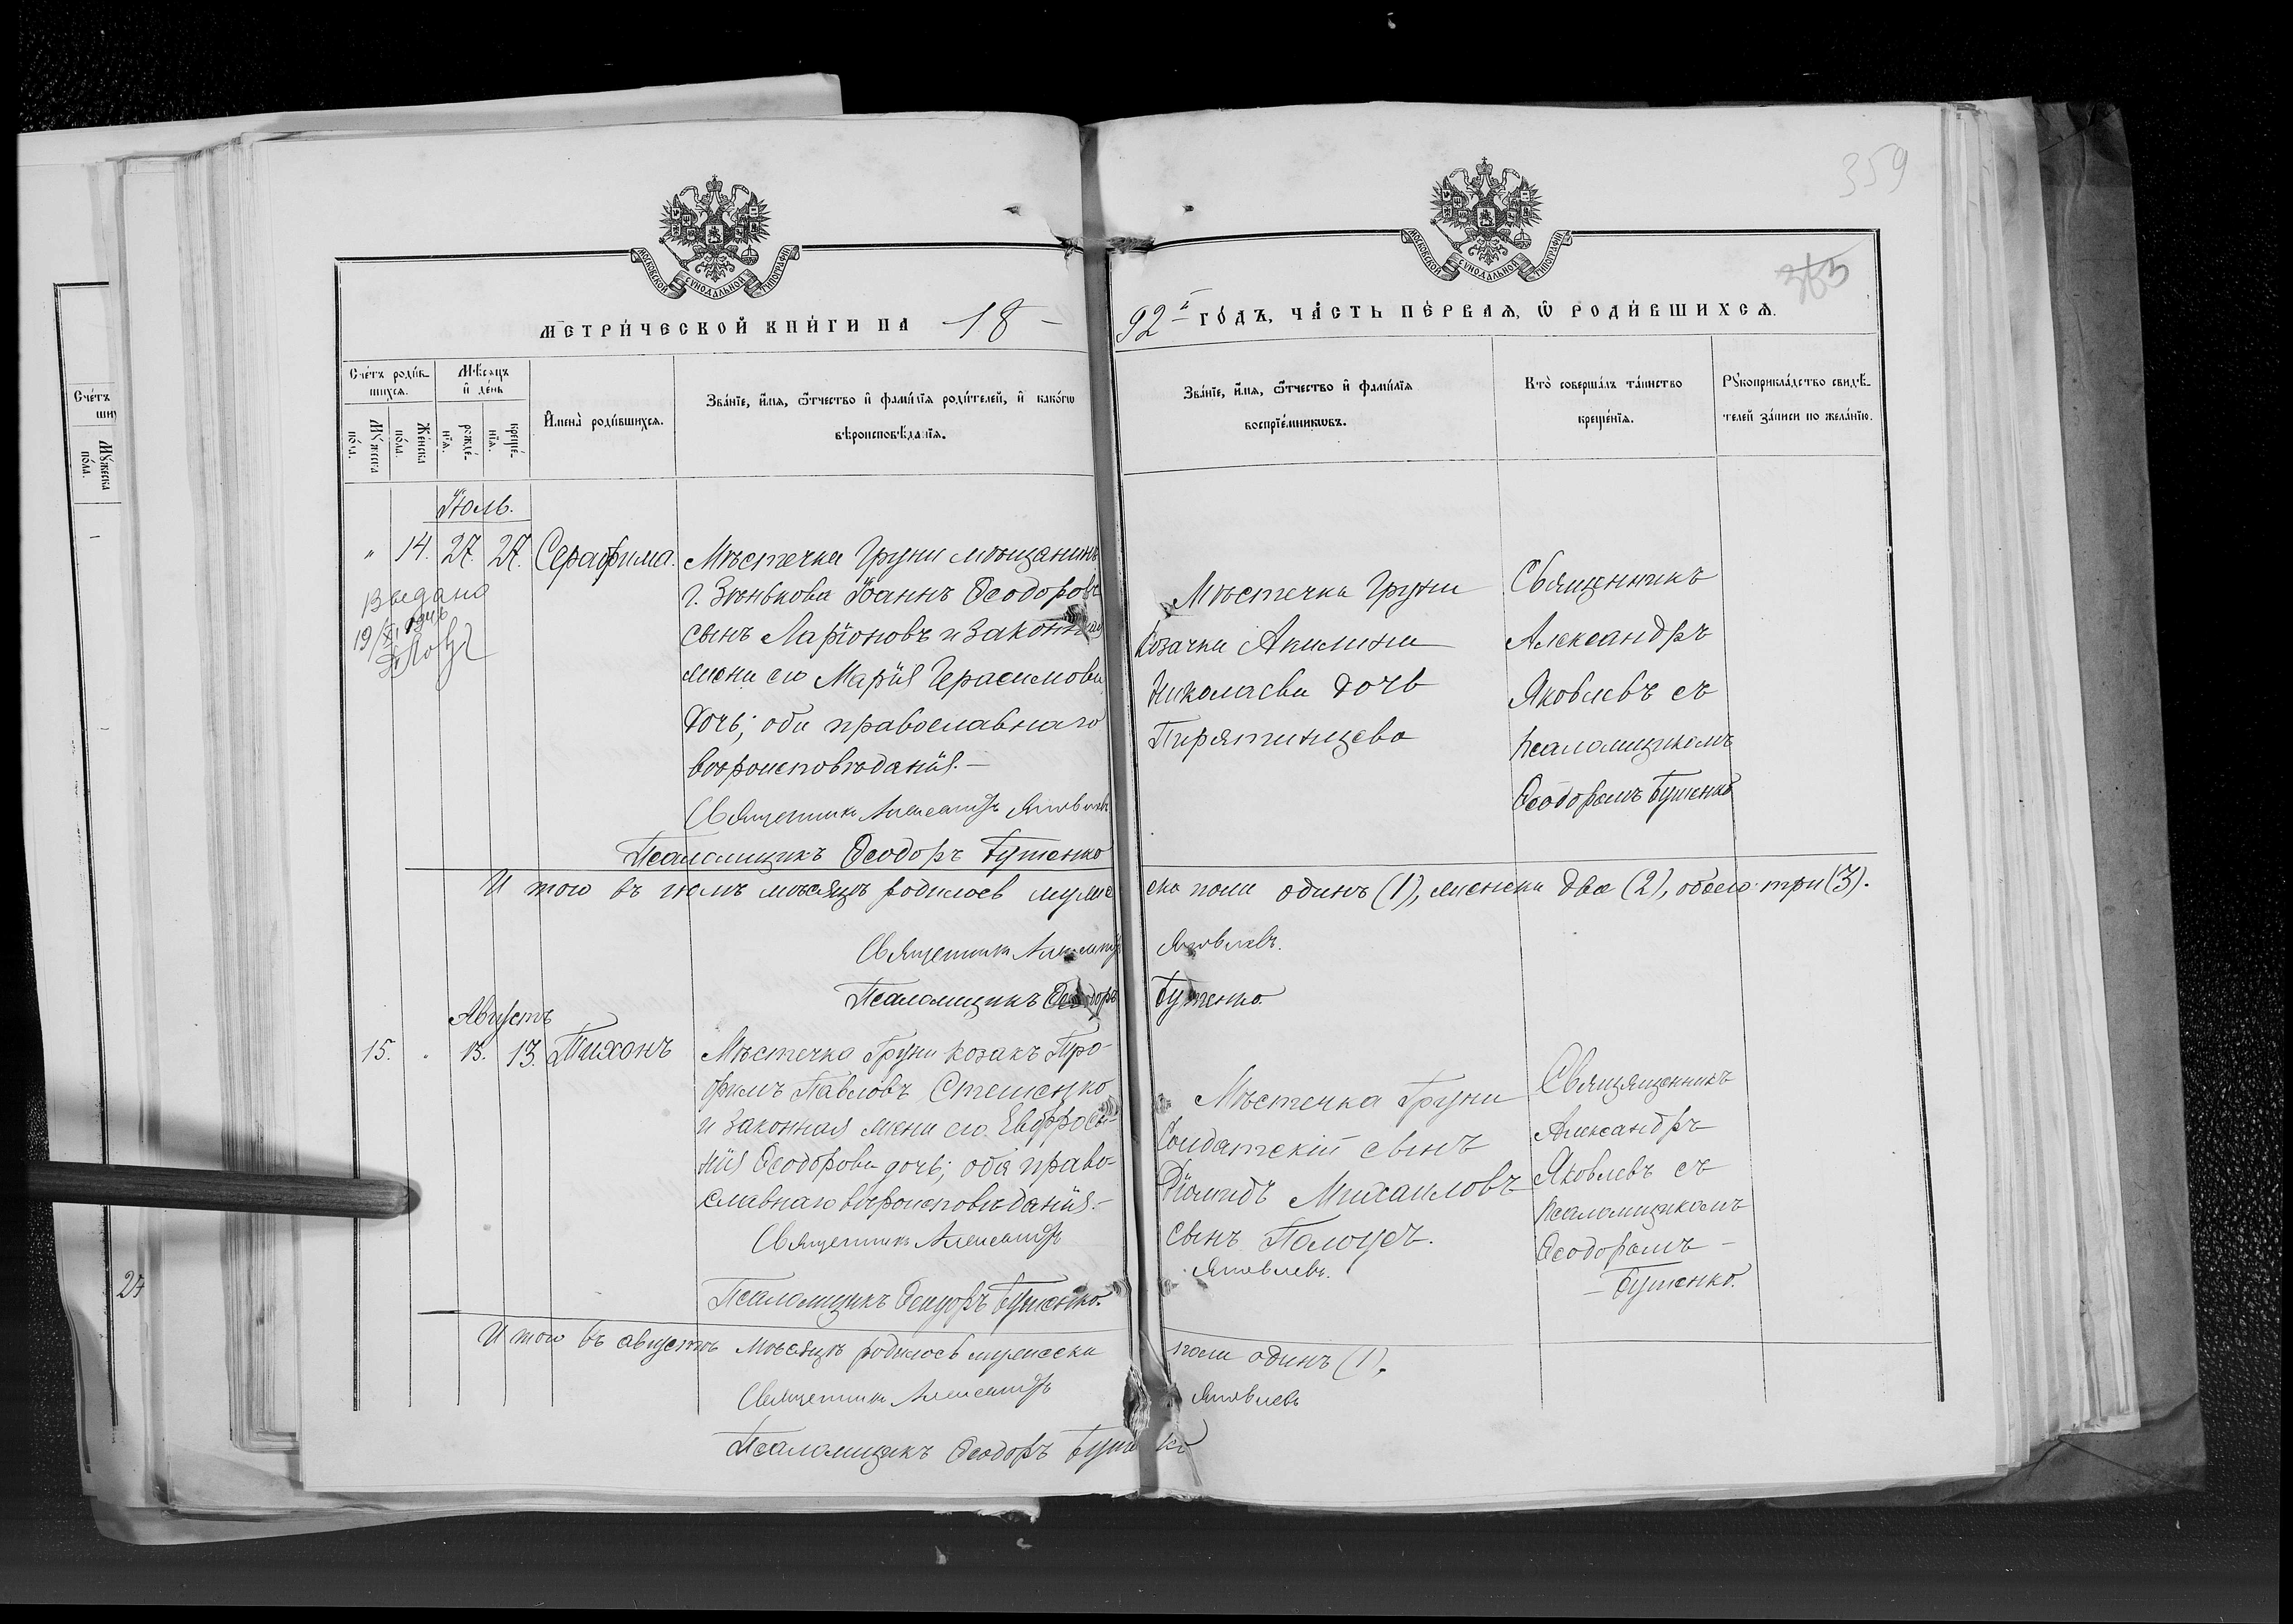 359
365
МОСКОВСКОЙ СѴНОДАЛЬНОЙ ТИПОГРАФІИ
МОСКОВСКОЙ СѴНОДАЛЬНОЙ ТИПОГРАФІИ
МЕТРИ́ЧЕСКОЙ КНИ́ГИ НА 18 92 й ГО́ДЪ, ЧА́СТЬ ПЕ́РВАЯ, Ѡ҆ РОДИ́ВШИХСѦ.
Сче́тъ роди́в-
шихсѧ.
Мѣ́сѧцъ
и҆ де́нь
Мꙋ́жеска
по́ла.
Же́нска
по́ла.
рожде́-
нїѧ.
креще́-
нїѧ.
И҆мена̀ роди́вшихсѧ.
Зва́нїе, и҆́мѧ, ѻ҆́тчество и҆ фами́лїѧ роди́телей, и҆ како́гѡ
вѣроисповѣ́данїѧ.
Зва́нїе, и҆́мѧ, ѻ҆́тчество и҆ фами́лїѧ
воспрїе́мникѡвъ.
Кто̀ соверша́лъ та́инство
креще́нїѧ.
Рꙋкоприкла́дство свидѣ́-
телей за́писи по жела́нїю.
Сче́тъ
Мꙋ́жеска
по́ла.
Іюль.
" 14. 27. 27. Серафима.
Выдано
19/XI
Мѣстечка Груни мѣщанинъ
г. Зѣнькова Іоаннъ Ѳеодоровъ
сынъ Ларіоновъ и законная
жена его Марія Герасимова
дочь; оба православнаго
вѣроисповѣданія.—
Священникъ Александръ Яковлевъ
Псаломщикъ Ѳеодоръ Бутенко
Мѣстечка Груни
козачка Акилина
Николаева дочь
Пирятинцева
Священникъ
Александръ
Яковлевъ съ
псаломщикомъ
Ѳеодоромъ Бутенко
И того въ іюлѣ мѣсяцѣ родилось мужеска пола одинъ (1), женска два (2), обоего три (3).
Священникъ Александръ Яковлевъ.
Псаломщикъ Ѳеодоръ Бутенко.
Августъ
15. " 13. 13. Тихонъ
Мѣстечка Груни козакъ Тро-
фимъ Павловъ Стешенко
и законная жена его Евфроси-
нія Ѳеодорова дочь; оба право-
славнаго вѣроисповѣданія.—
Священникъ Александръ Яковлевъ.
Псаломщикъ Ѳеодоръ Бутенко.
Мѣстечка Груни
Солдатскій сынъ
Діомидъ Михаиловъ
сынъ Полоусъ.
Свящященникъ
Александръ
Яковлевъ съ
псаломщикомъ
Ѳеодоромъ —
— Бутенко.
И того въ августѣ мѣсяцѣ родилось мужеска пола одинъ (1).
Священникъ Александръ Яковлевъ
Псаломщикъ Ѳеодоръ Бутенко
24